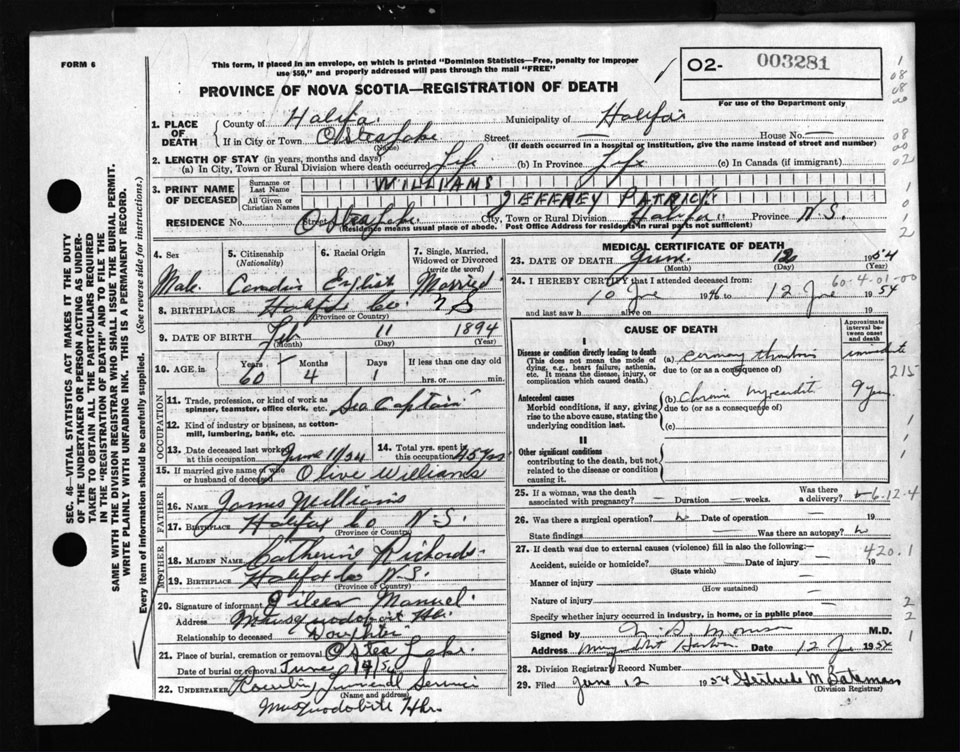 FORM 6
This form, if placed in an envelope, on which is printed "Dominion Statistics—Free, penalty for improper
use $50," and properly addressed will pass through the mail "FREE"
O2- 003281
For use of the Department only
PROVINCE OF NOVA SCOTIA—REGISTRATION OF DEATH
1. PLACE OF DEATH
County of Halifax Municipality of Halifax
If in City or Town Ostrea Lake Street — House No. —
(Name) (If death occurred in a hospital or institution, give the name instead of street and number)
2. LENGTH OF STAY (in years, months and days)
(a) In City, Town or Rural Division where death occurred Life (b) In Province Life (c) In Canada (if immigrant)
3. PRINT NAME OF DECEASED
Surname or Last Name WILLIAMS
All Given or Christian Names JEFFREY PATRICK
RESIDENCE No. Street Ostrea Lake City, Town or Rural Division Halifax Province N.S.
(Residence means usual place of abode. Post Office Address for residents in rural parts not sufficient)
4. Sex Male
5. Citizenship (Nationality)
6. Racial Origin English
7. Single, Married, Widowed or Divorced (write the word) Married
8. BIRTHPLACE Halifax Co. N S
(Province or Country)
9. DATE OF BIRTH Feb 11 1894
(Month) (Day) (Year)
10. AGE in Years 60 Months 4 Days 1 If less than one day old
hrs. or min.
OCCUPATION
11. Trade, profession, or kind of work as spinner, teamster, office clerk, etc. Sea Captain
12. Kind of industry or business, as cotton-mill, lumbering, bank, etc.
13. Date deceased last worked at this occupation June 11/54
14. Total yrs. spent in this occupation 45 yrs
15. If married give name of wife or husband of deceased Olive Williams
FATHER
16. NAME James Williams
17. BIRTHPLACE Halifax Co N.S.
(Province or Country)
MOTHER
18. MAIDEN NAME Catherine Richards
19. BIRTHPLACE Halifax Co N.S.
(Province or Country)
20. Signature of informant Eileen Manuel
Address Musquodoboit Hbr.
Relationship to deceased Daughter
21. Place of burial, cremation or removal Ostrea Lake
Date of burial or removal June 14/54
22. UNDERTAKER Funeral Service
(Name and address)
Hbr
MEDICAL CERTIFICATE OF DEATH
23. DATE OF DEATH June 12 1954
(Month) (Day) (Year)
60-4-01-00
24. I HEREBY CERTIFY that I attended deceased from:
10 June 19 to 12 June 1954
and last saw h alive on 19
CAUSE OF DEATH
Approximate interval between onset and death
I
Disease or condition directly leading to death
(This does not mean the mode of dying, e.g., heart failure, asthenia, etc. It means the disease, injury, or complication which caused death.)
(a) coronary thrombosis immediate
due to (or as a consequence of)
215
Antecedent causes
Morbid conditions, if any, giving rise to the above cause, stating the underlying condition last.
(b) chronic myocarditis 9 yrs.
due to (or as a consequence of)
(c)
II
Other significant conditions
contributing to the death, but not related to the disease or condition causing it.
25. If a woman, was the death associated with pregnancy? — Duration — weeks. Was there a delivery? —
6-12-4
26. Was there a surgical operation? Date of operation — 19
State findings Was there an autopsy?
27. If death was due to external causes (violence) fill in also the following:—
420.1
Accident, suicide or homicide? Date of injury 19
(State which)
Manner of injury
(How sustained)
Nature of injury
Specify whether injury occurred in industry, in home, or in public place
Signed by M.D.
Address Date 12 June 1954
28. Division Registrar's Record Number 8
29. Filed June 12 1954 Gertrude M Bateman
(Division Registrar)
SEC. 46—VITAL STATISTICS ACT MAKES IT THE DUTY
OF THE UNDERTAKER OR PERSON ACTING AS UNDER-
TAKER TO OBTAIN ALL THE PARTICULARS REQUIRED
IN THE "REGISTRATION OF DEATH" AND TO FILE THE
SAME WITH THE DIVISION REGISTRAR WHO SHALL ISSUE THE BURIAL PERMIT.
WRITE PLAINLY WITH UNFADING INK. THIS IS A PERMANENT RECORD.
Every item of information should be carefully supplied. (See reverse side for instructions.)